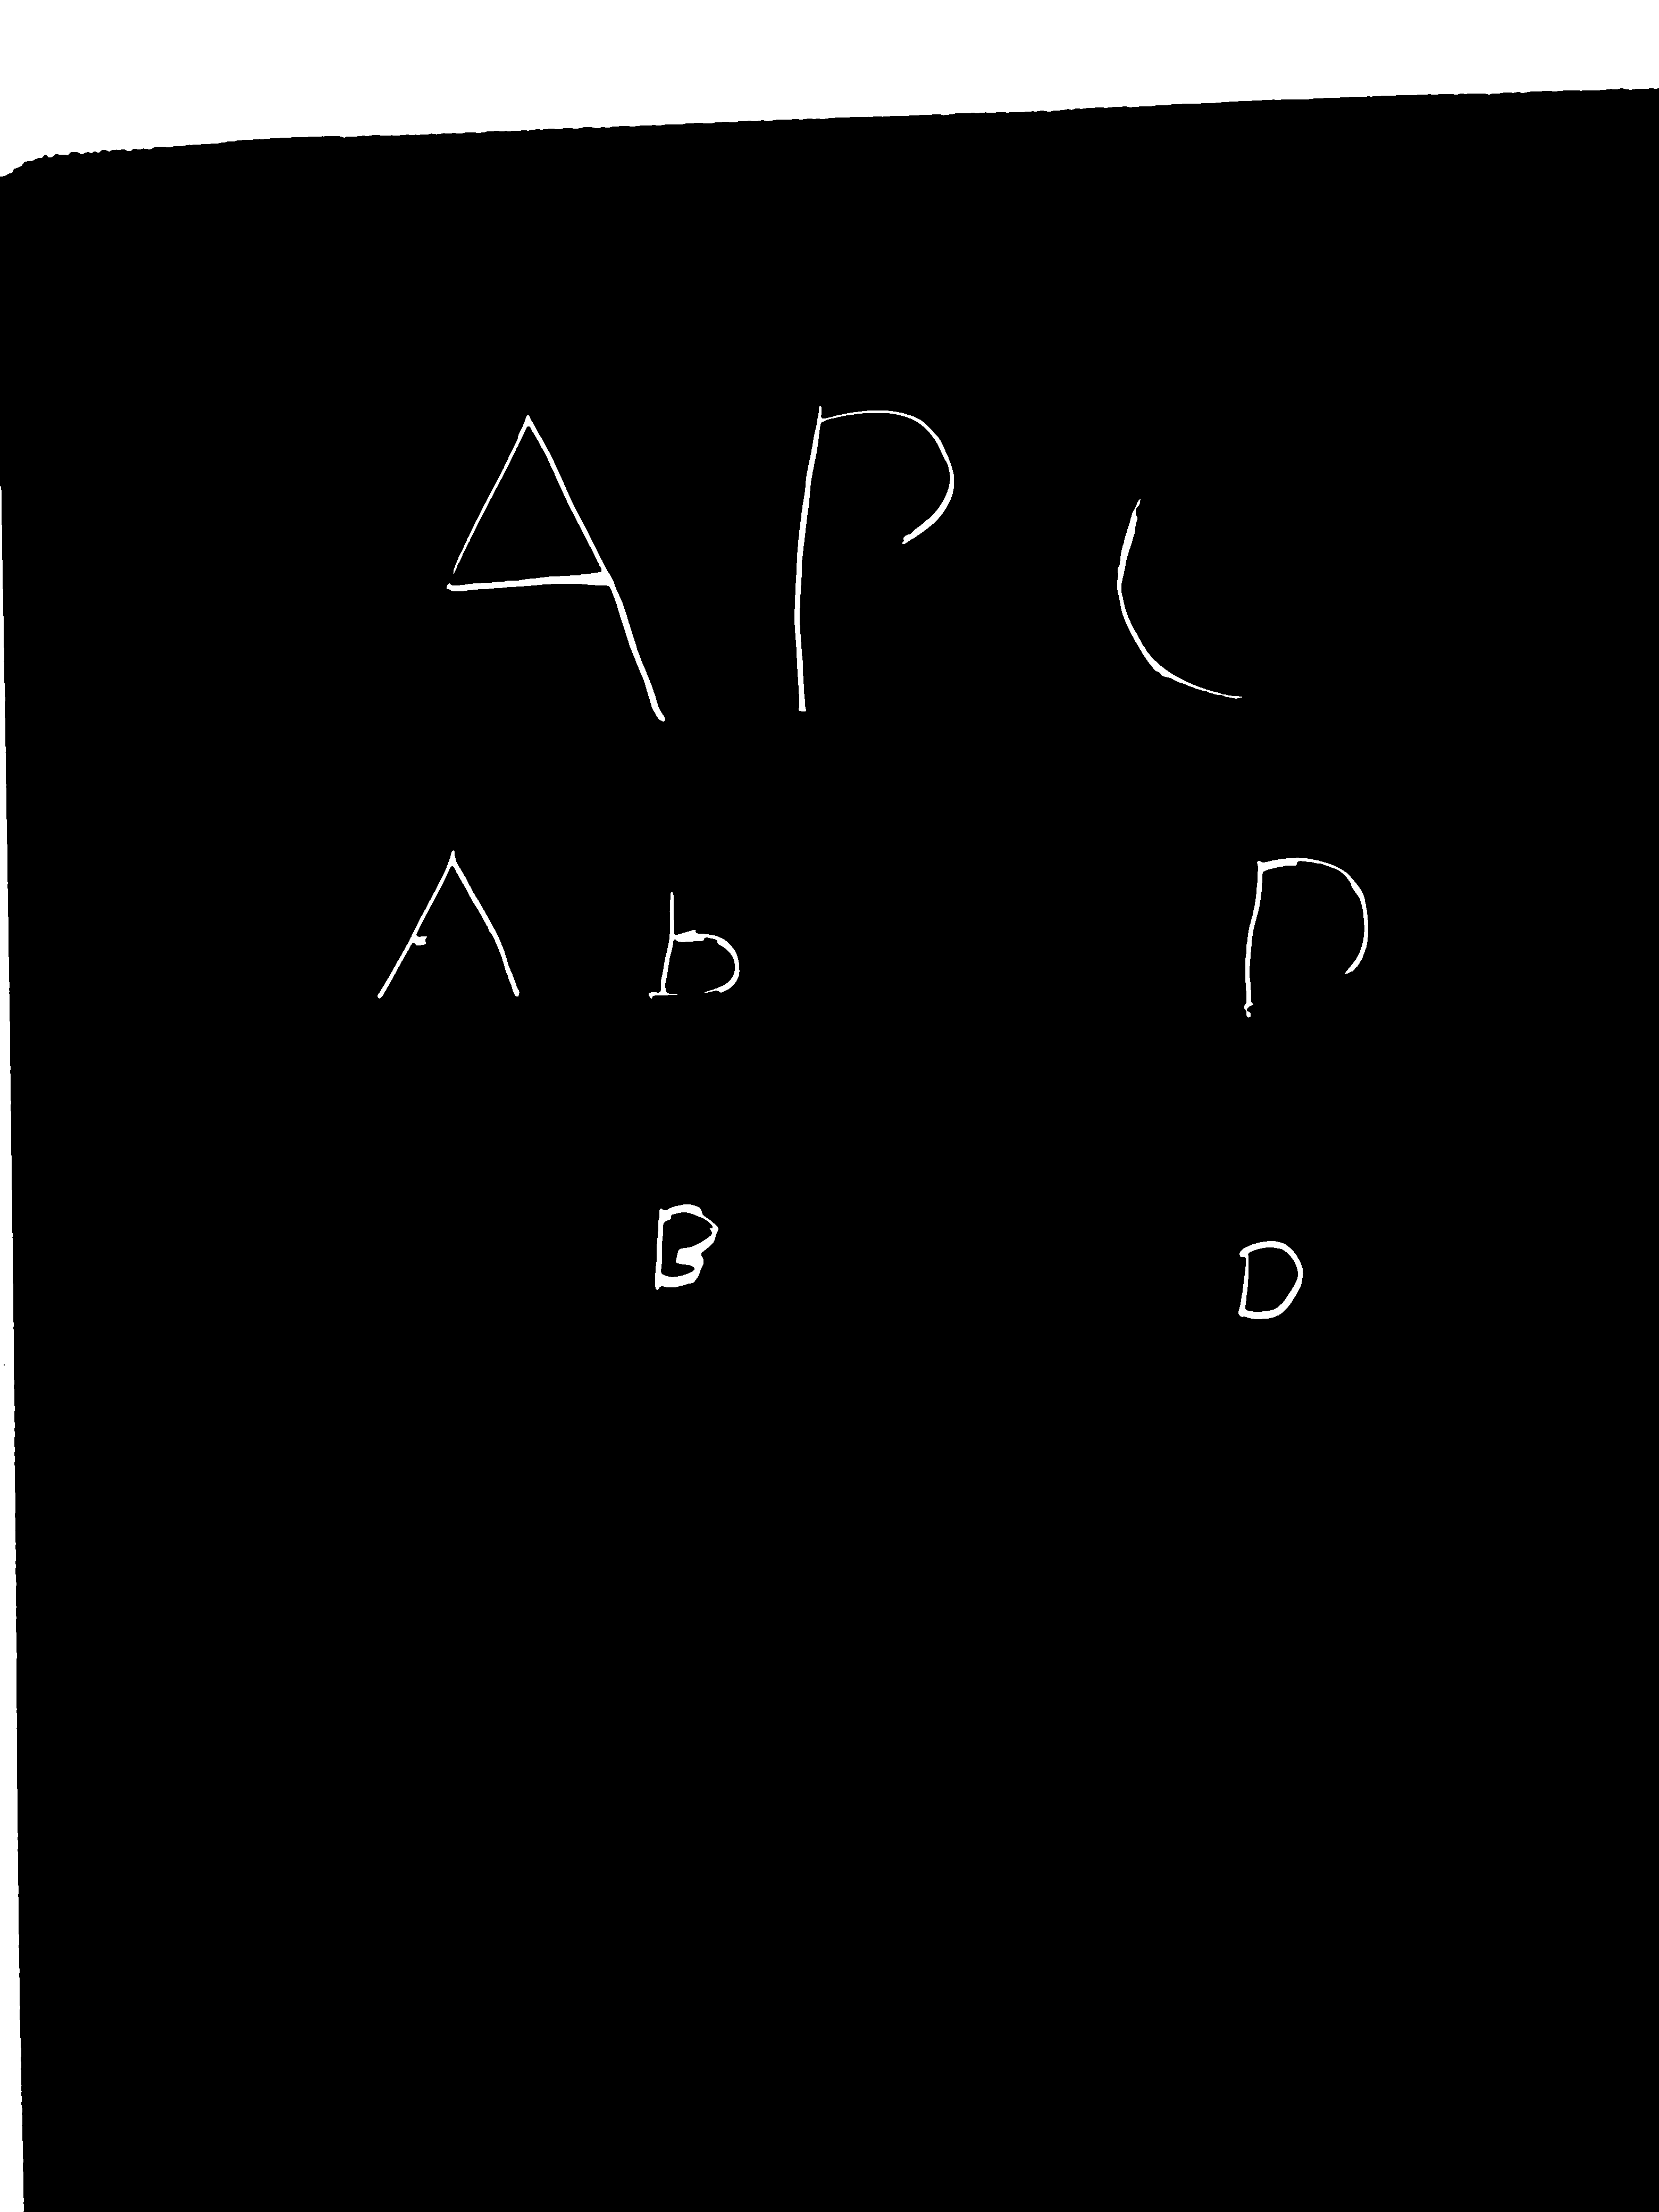 A P C
A b P
B D